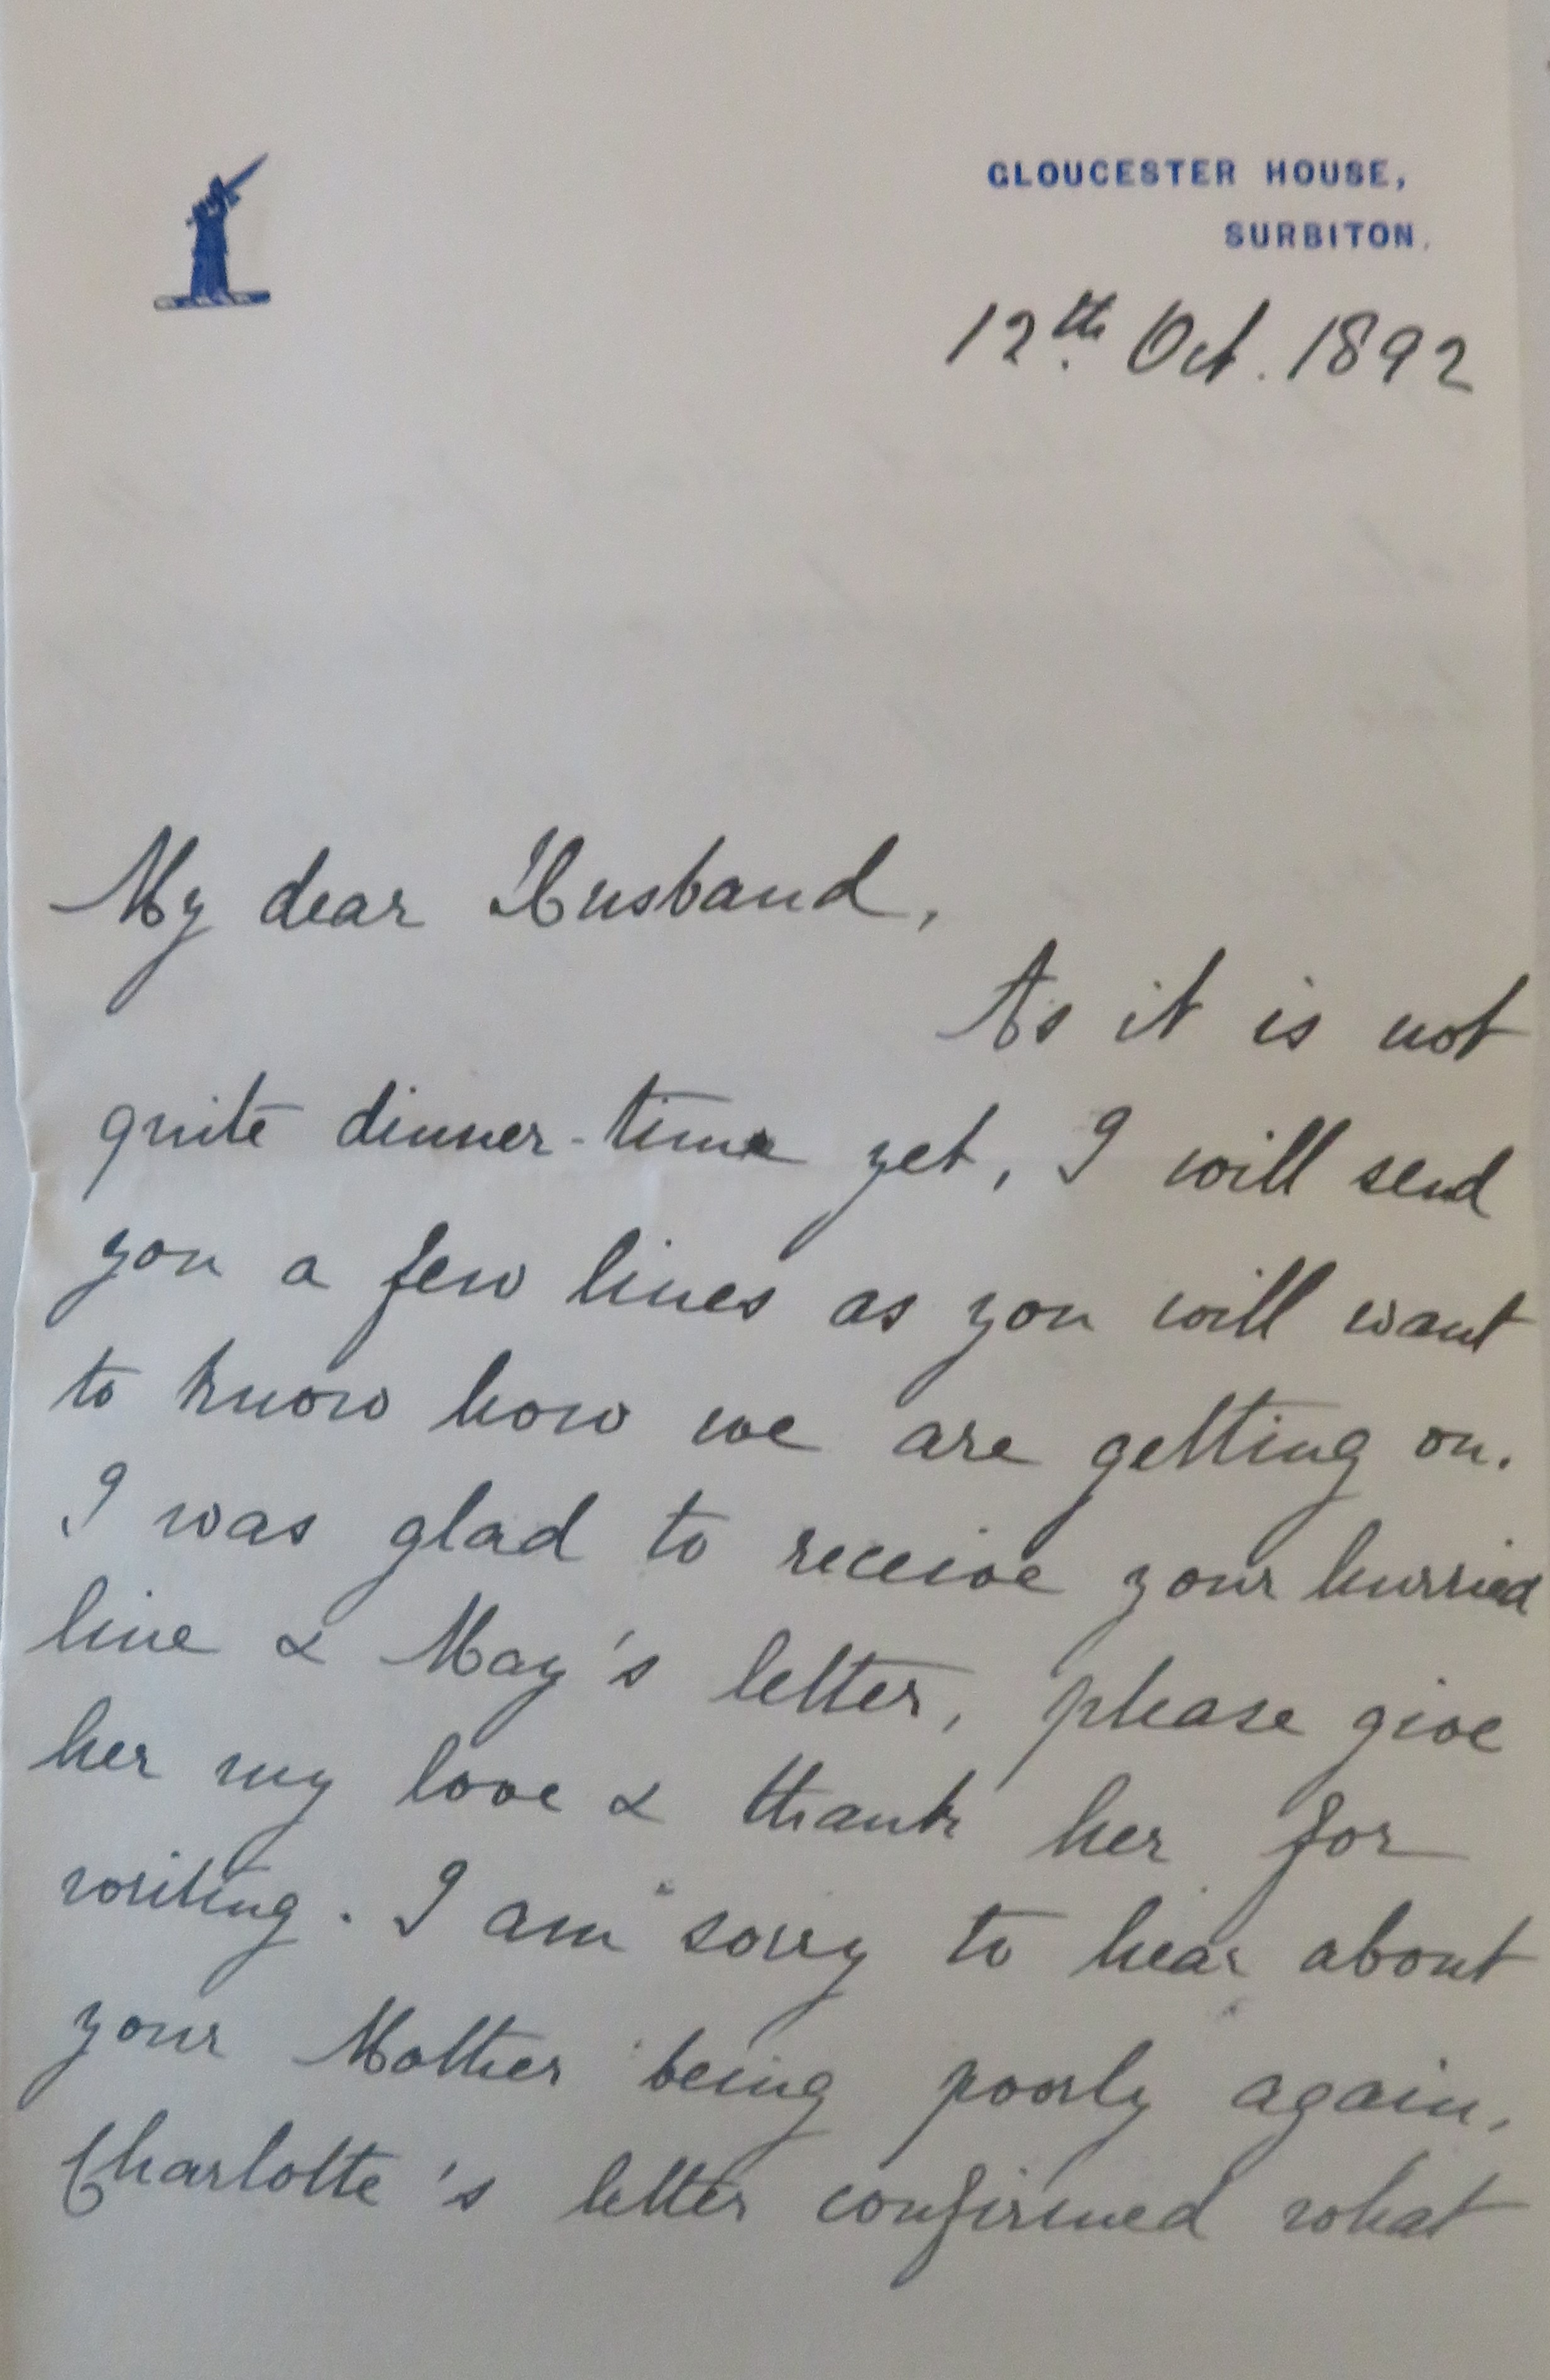 GLOUCESTER HOUSE,
SURBITON.
12th. Oct. 1892
My dear Husband,
As it is not
quite dinner-time yet, I will send
you a few lines as you will want
to know how we are getting on.
I was glad to receive your hurried
line & May's letter, please give
her my love & thank her for
writing. I am sorry to hear about
your Mother being poorly again,
Charlotte's letter confirmed what